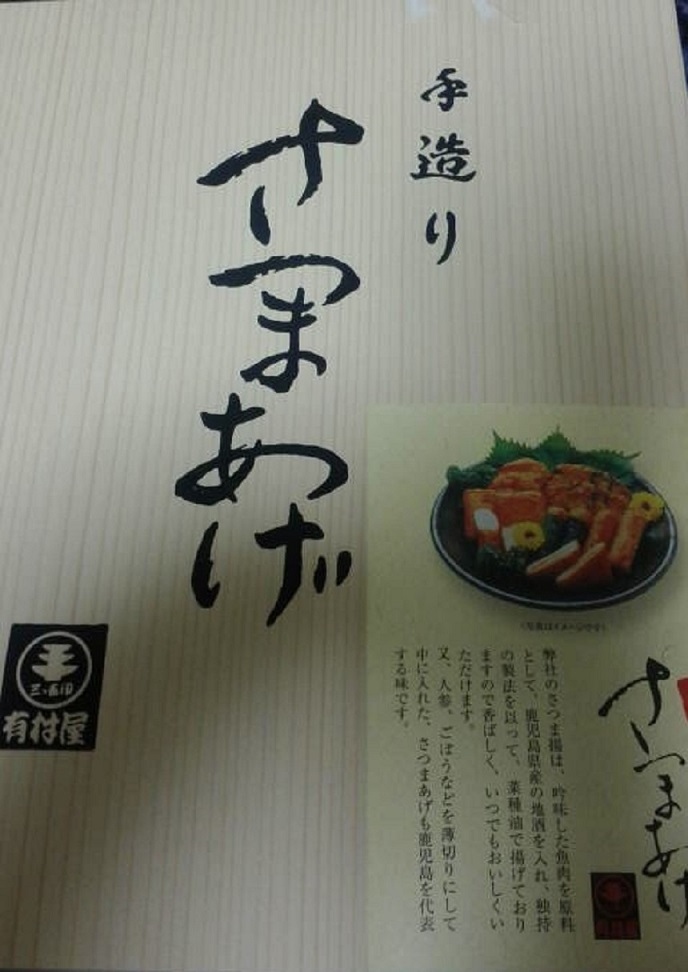 手造り
さつまあげ
三・五旧
有村屋
さつまあげ
弊社のさつま揚は、吟味した魚肉を原料
として、鹿児島県産の地酒を入れ、独特
の製法を以って、菜種油で揚げており
ますので香ばしく、いつでもおいしくい
ただけます。
又、人参、ごぼうなどを薄切りにして
中に入れた、さつまあげも鹿児島を代表
する味です。
有村屋